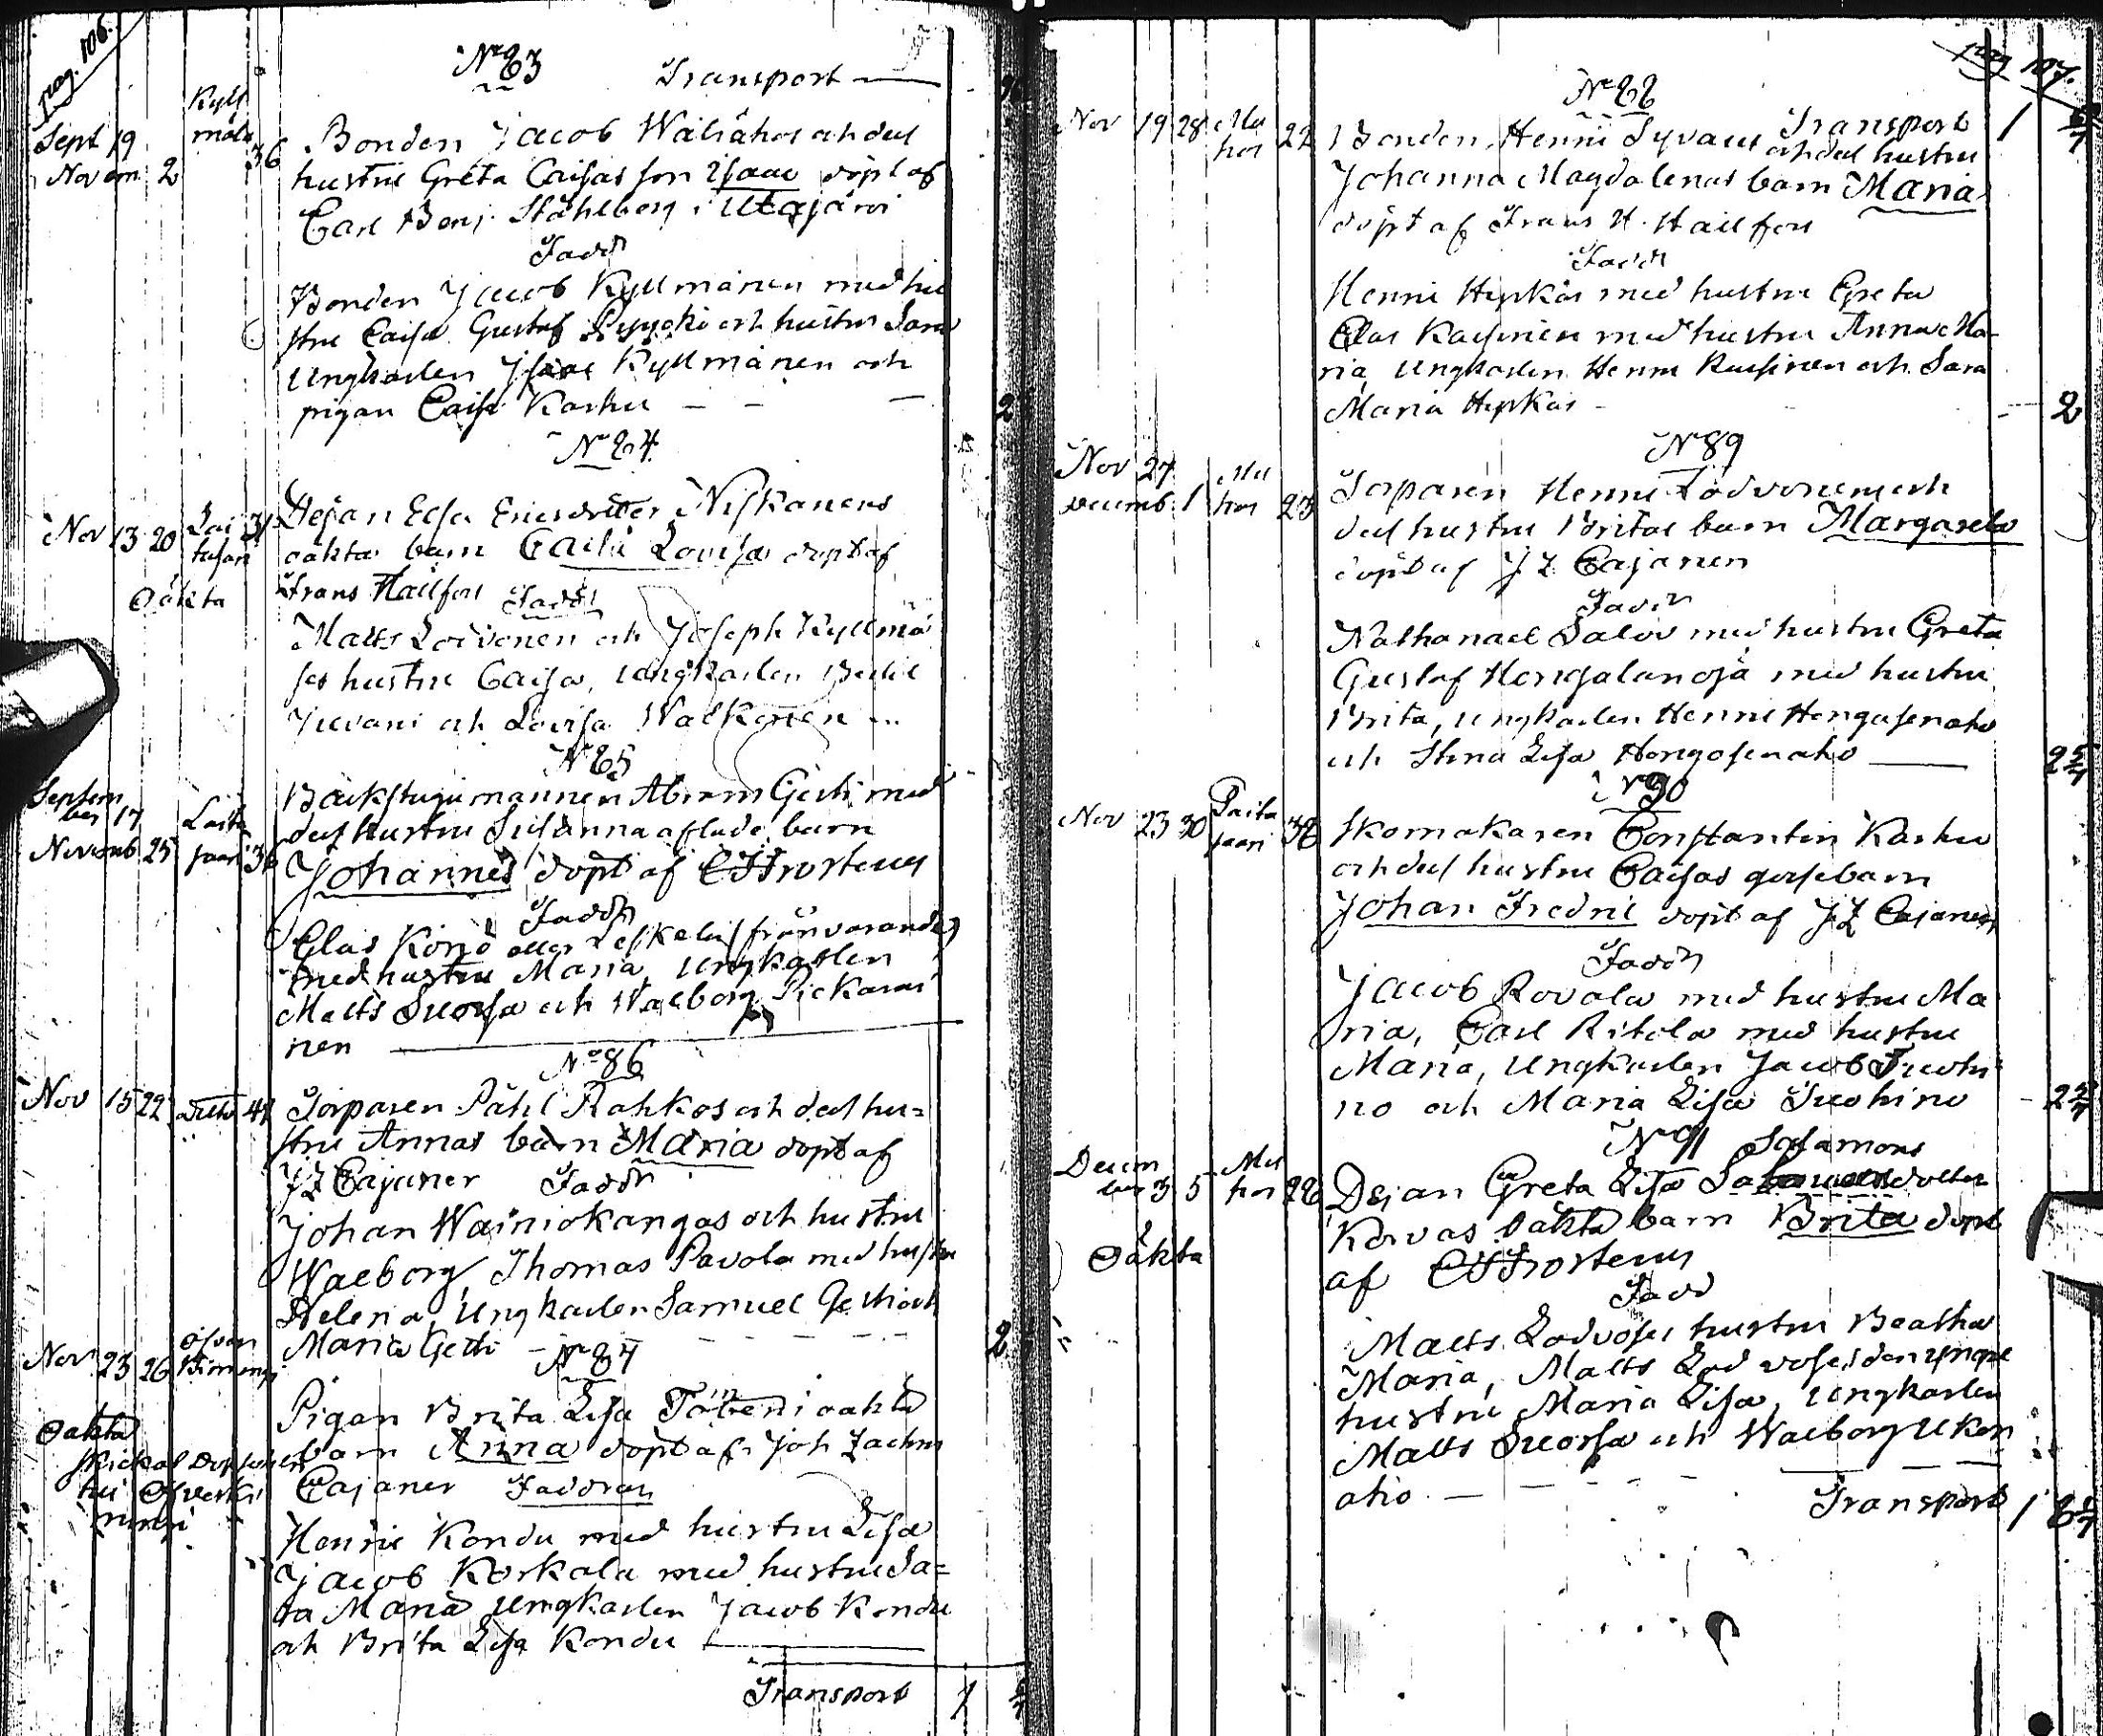 pag. 106.
No 83
Transport
Sept 19
Novem 2
Kyll
mäla
36
Bonden Jacob Wäliahos och des
hustru Greta Caisas son Isaac döpt af
Carl Benj. Ståhlberg i Utajärvi
Fadd
Bonden Jacob Kyllmänen med hu
stru Caisa Gustaf och hustru Sara
Ungkarlen Isaac Kyllmänen och
pigan Caisa Karhu
2
No 84
Nov 13 20
31
Oäkta
Dejan Elsa Ericsdotter Niskanens
oäkta barn Caisa Lovisa döpt af
Frans Hällfors Faddr
Matts Loivonen och Joseph Kyllmä
ses hustru Caisa, ungkarlen Bertil
Juvani och Lovisa Walkonen
No 85
Septem
ber 17
Novemb 25
Laita
saari 36
Backstugumannen Abram Gästi med
des hustru Susanna aflade barn
Johannes döpt af C F Frosterus
Faddr
Elas Könö eller Leskelä (frånvarande)
med hustru Maria, ungkarlen
Matts Suorsa och Walborg Pickarai
nen
No 86
Nov 15 22 ditto 41
Torparen Påhl Rahkos och des hu=
stru Annas barn Maria döpt af
J Z Cajaner Faddr
Johan Wainiokangas och hustru
Walborg Thomas Pavola med hustru
Helena, Ungkarlen Samuel Gesti och
Maria Gesti
2
No 87
Nov 23 26
Oäkta
Pigan Brita Lisa oäkta
barn Anna döpt af Joh Zachris
Cajaner Faddran
Henric Kondu med hustru Lisa
Jacob Korkala med hustru Sa=
ra Maria Ungkarlen Jacob Kondu
och Brita Lisa Kondu
Transport 1
pag 107.
No 88
Transport 1
Nov 19 28 Mu
hos 22
Bonden Henric Syväus och des hustru
Johanna Magdalenas barn Maria
döpt af Frans H. Hällfors
Faddr
Henric Hepkas med hustru Greta
Elas Kasinen med hustru Anna Ma-
ria, Ungkarlen Henric Kasinen och Sara
Maria Hepkas
2
No 89
Nov 27
Decemb 1
Mu
hos 23
Torparen Henric Lodvonen och
des hustru Britas barn Margareta
döpt af J Z Cajanen
Faddr
Nathanael Salov med hustru Greta
Gustaf Hongalanoja med hustru
Brita, ungkarlen Henric Hongasenaho
och Stina Lisa Hongasenaho
2 5/7
No 90
Nov 23 30
Laita
saari 38
Skomakaren Constantin Karhu
och des hustru Caisas gossebarn
Johan Fredric döpt af J Z Cajaner
Faddr
Jacob Rovola med hustru Ma
ria, Carl Ritola med hustru
Maria, Ungkarlen Jacob Tuohi
no och Maria Lisa Tuohino
2 5/7
No 91
Salamons
Decem
ber 3 5
Mu
hos 22
Oäkta
Dejan Greta Lisa dotter
Korvas oäkta barn Brita döpt
af C F Frosterus
Fadd
Matts Lodvoses hustru Beatha
Maria, Matts Lodvoses den yngre
hustru Maria Lisa, Ungkarlen
Matts Suorsa och Walborg Ukon
aho
Transport 1